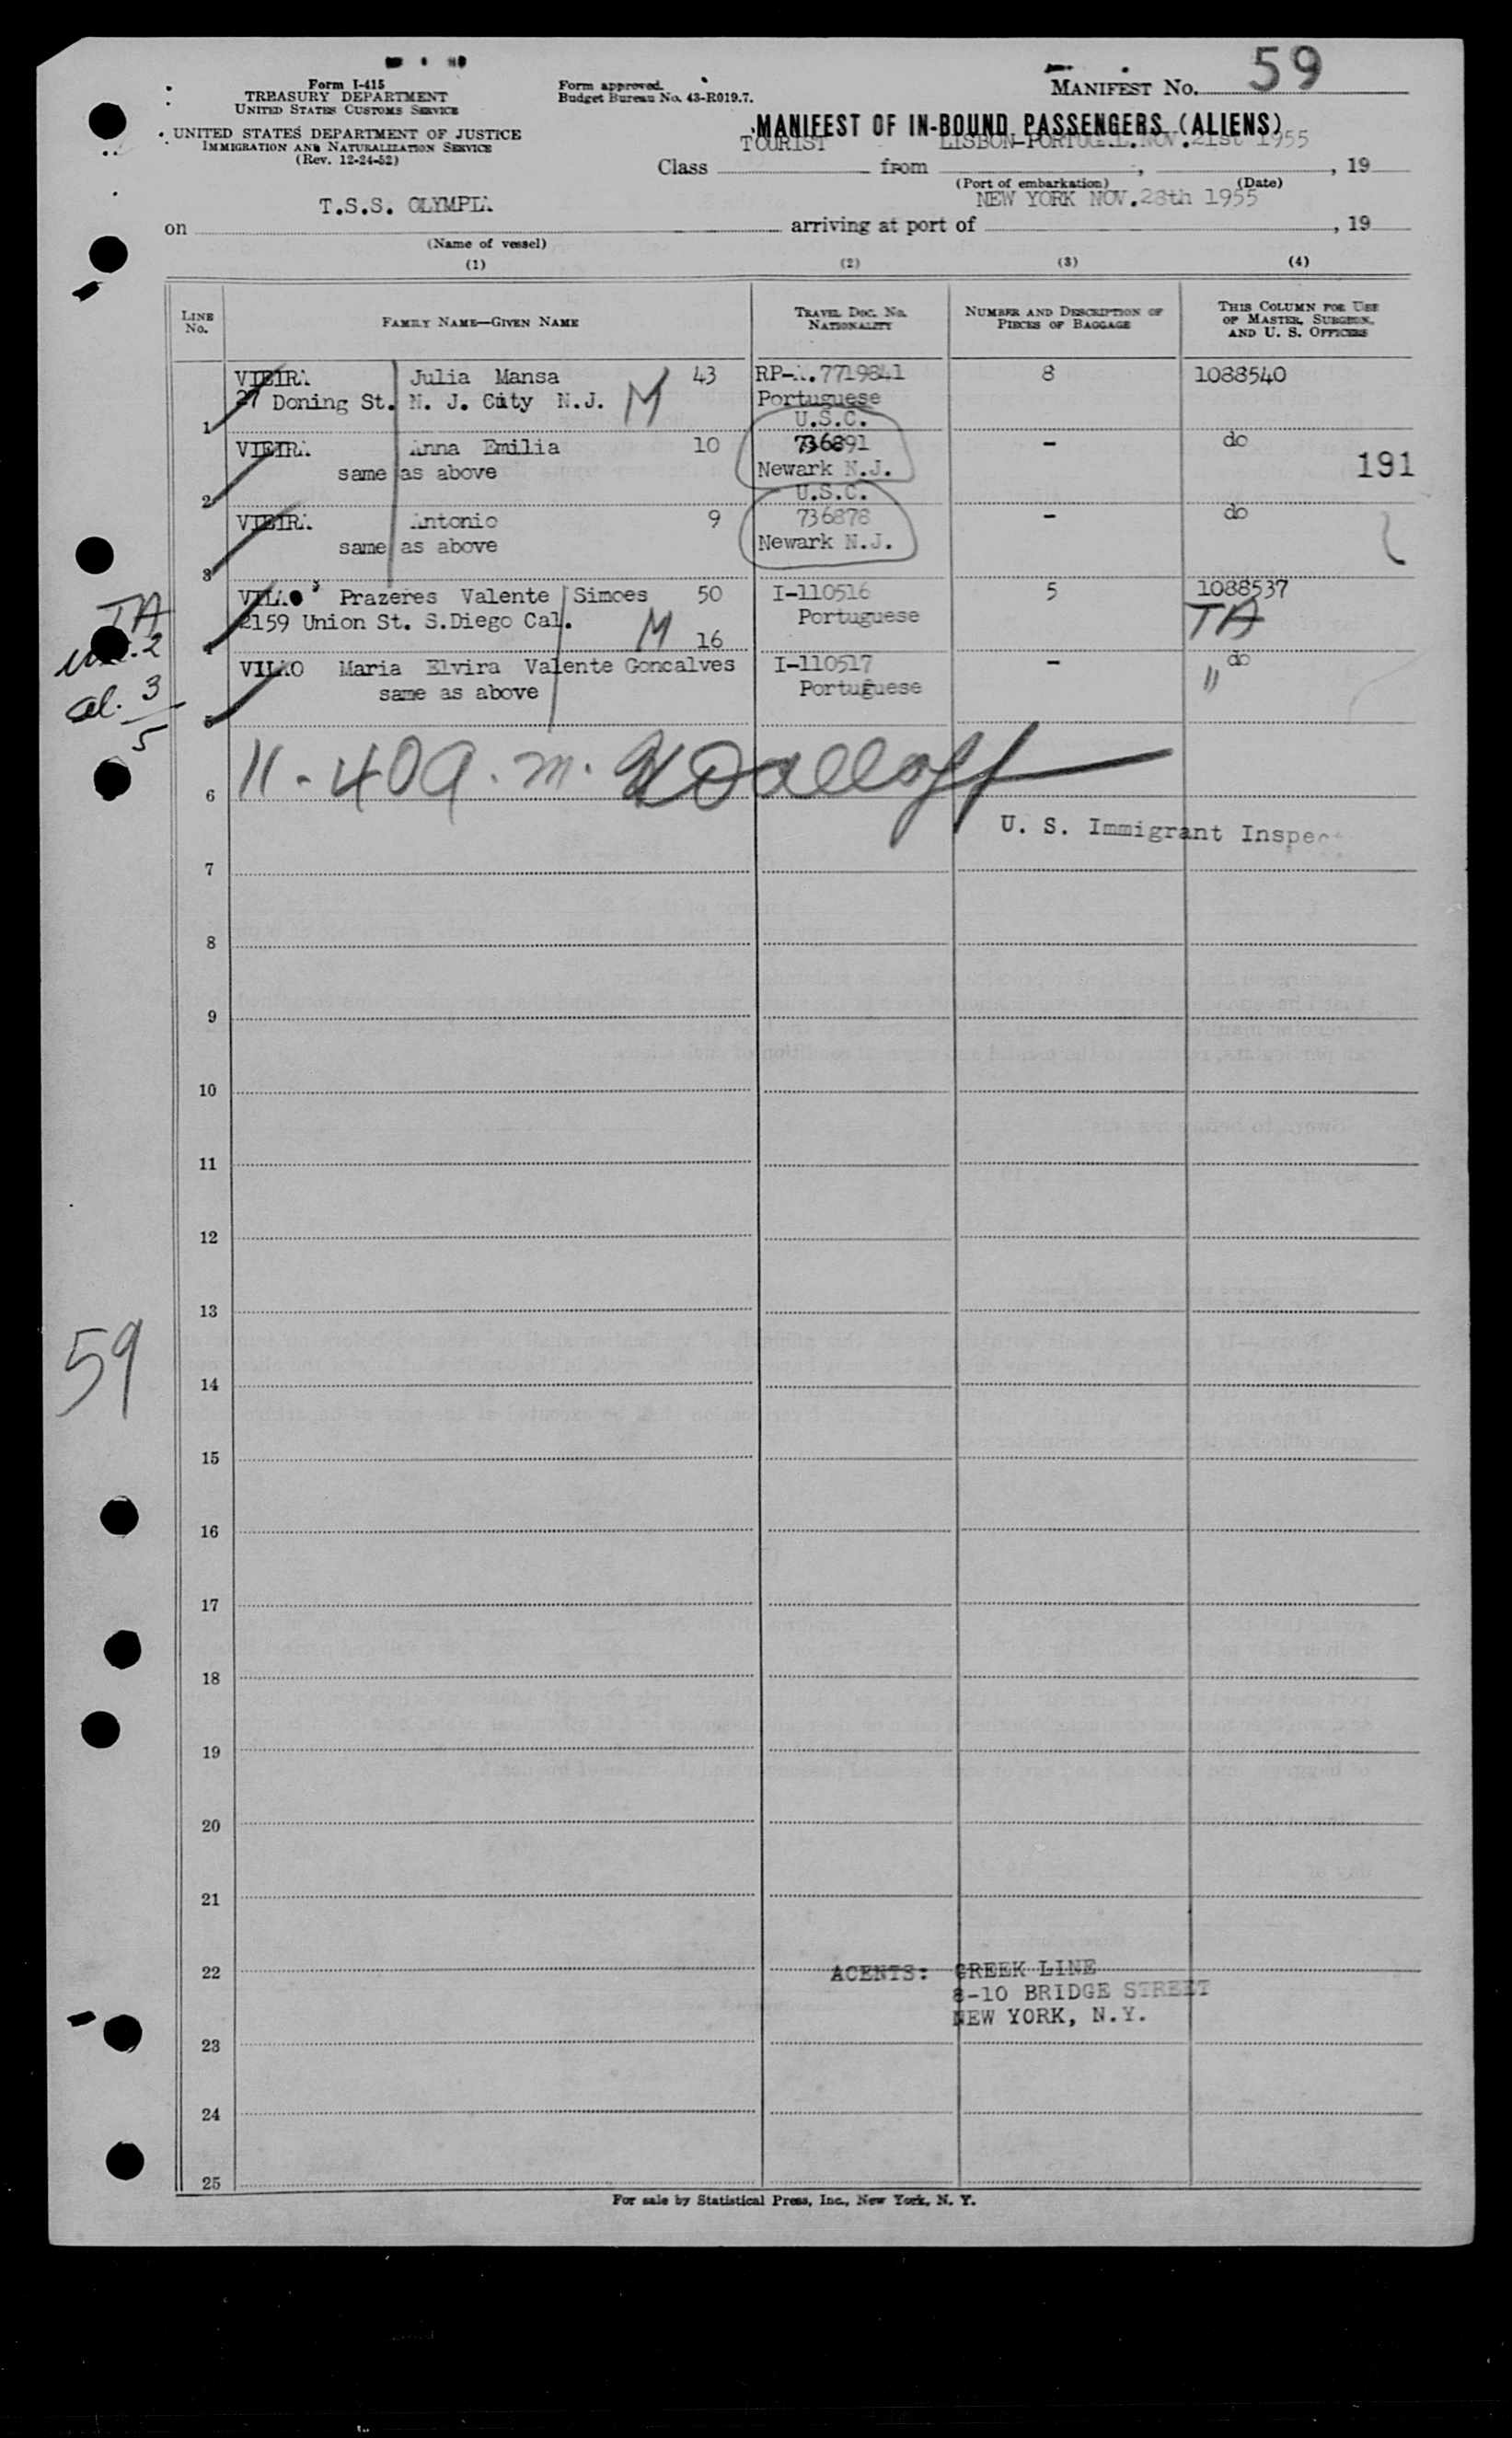 Form I-415
TREASURY DEPARTMENT
UNITED STATES CUSTOMS SERVICE
UNITED STATES DEPARTMENT OF JUSTICE
IMMIGRATION AND NATURALIZATION SERVICE
(Rev. 12-24-52)
Form approved.
Budget Bureau No. 43-R019.7.
MANIFEST NO. 59
MANIFEST OF IN-BOUND PASSENGERS (ALIENS)
Class TOURIST from LISBON-PORTUGAL. NOV. 21st 1955, 19
(Port of embarkation) (Date)
on T.S.S. OLYMPIA arriving at port of NEW YORK NOV. 28th 1955, 19
(Name of vessel)
(1) (2) (3) (4)
LINE No. FAMILY NAME—GIVEN NAME TRAVEL DOC. NO. NATIONALITY NUMBER AND DESCRIPTION OF PIECES OF BAGGAGE THIS COLUMN FOR USE OF MASTER, SURGEON, AND U. S. OFFICERS
VIEIRA Julia Mansa 43 RP-A.7719841 8 1088540
27 Doning St. N. J. City N.J. M Portuguese
1 U.S.C.
VIEIRA Anna Emilia 10 736891 - do
same as above Newark N.J. 191
2 U.S.C.
VIEIRA Antonio 9 736878 - do
same as above Newark N.J.
3
VILAO Prazeres Valente Simoes 50 I-110516 5 1088537
TA 2159 Union St. S.Diego Cal. M Portuguese TA
4 16
VILAO Maria Elvira Valente Goncalves I-110517 - do
same as above Portuguese "
2
al. 3
5
5
6 11-40 a.m.
U. S. Immigrant Inspec
7
8
9
10
11
12
13
59
14
15
16
17
18
19
20
21
22 AGENTS: GREEK LINE
8-10 BRIDGE STREET
NEW YORK, N.Y.
23
24
25
For sale by Statistical Press, Inc., New York, N. Y.